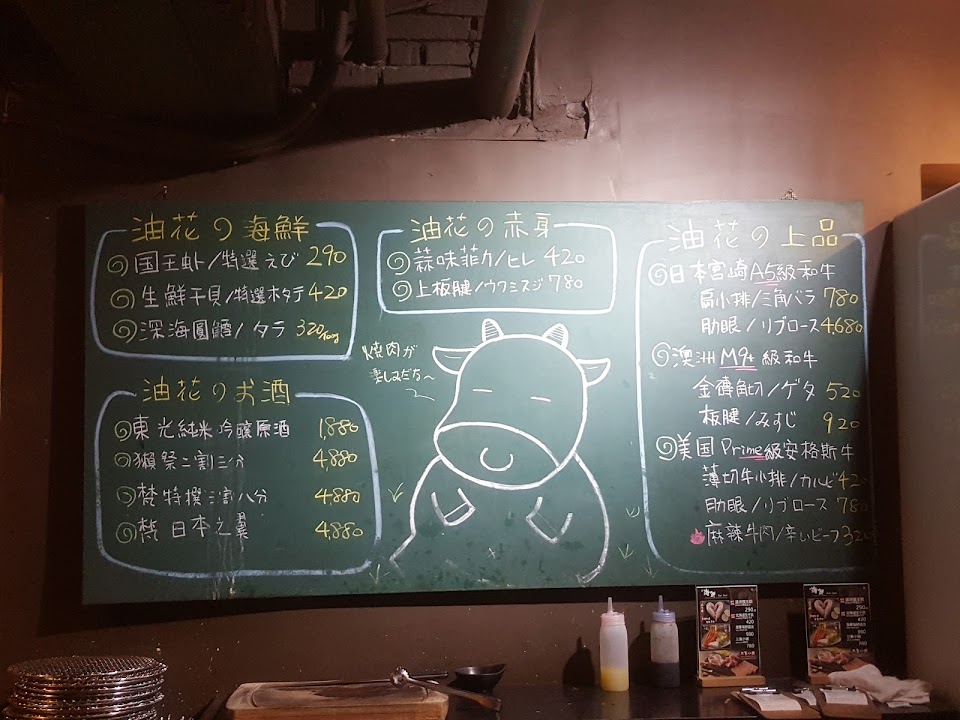 油花の海鮮
国王虾/特選えび 290
生鮮干貝/特選ホタテ 420
深海圓鱈/タラ 320/100g
油花のお酒
東光純米吟釀原酒 1,880
獺祭二割三分 4,880
梵特撰二割八分 4,880
梵 日本之翼 4,880
油花の赤身
蒜味菲力/ヒレ 420
上板腱/ウワミスジ 780
焼肉が
楽しみだな~
油花の上品
日本宮崎A5級和牛
扇小排/三角バラ 780
肋眼/リブロース 4,680
澳洲M9+級和牛
金磚角切/ゲタ 520
板腱/みすじ 920
美国Prime級安格斯牛
薄切牛小排/カルビ 420
肋眼/リブロース 780
麻辣牛肉/辛いビーフ 320
290
420
980
780